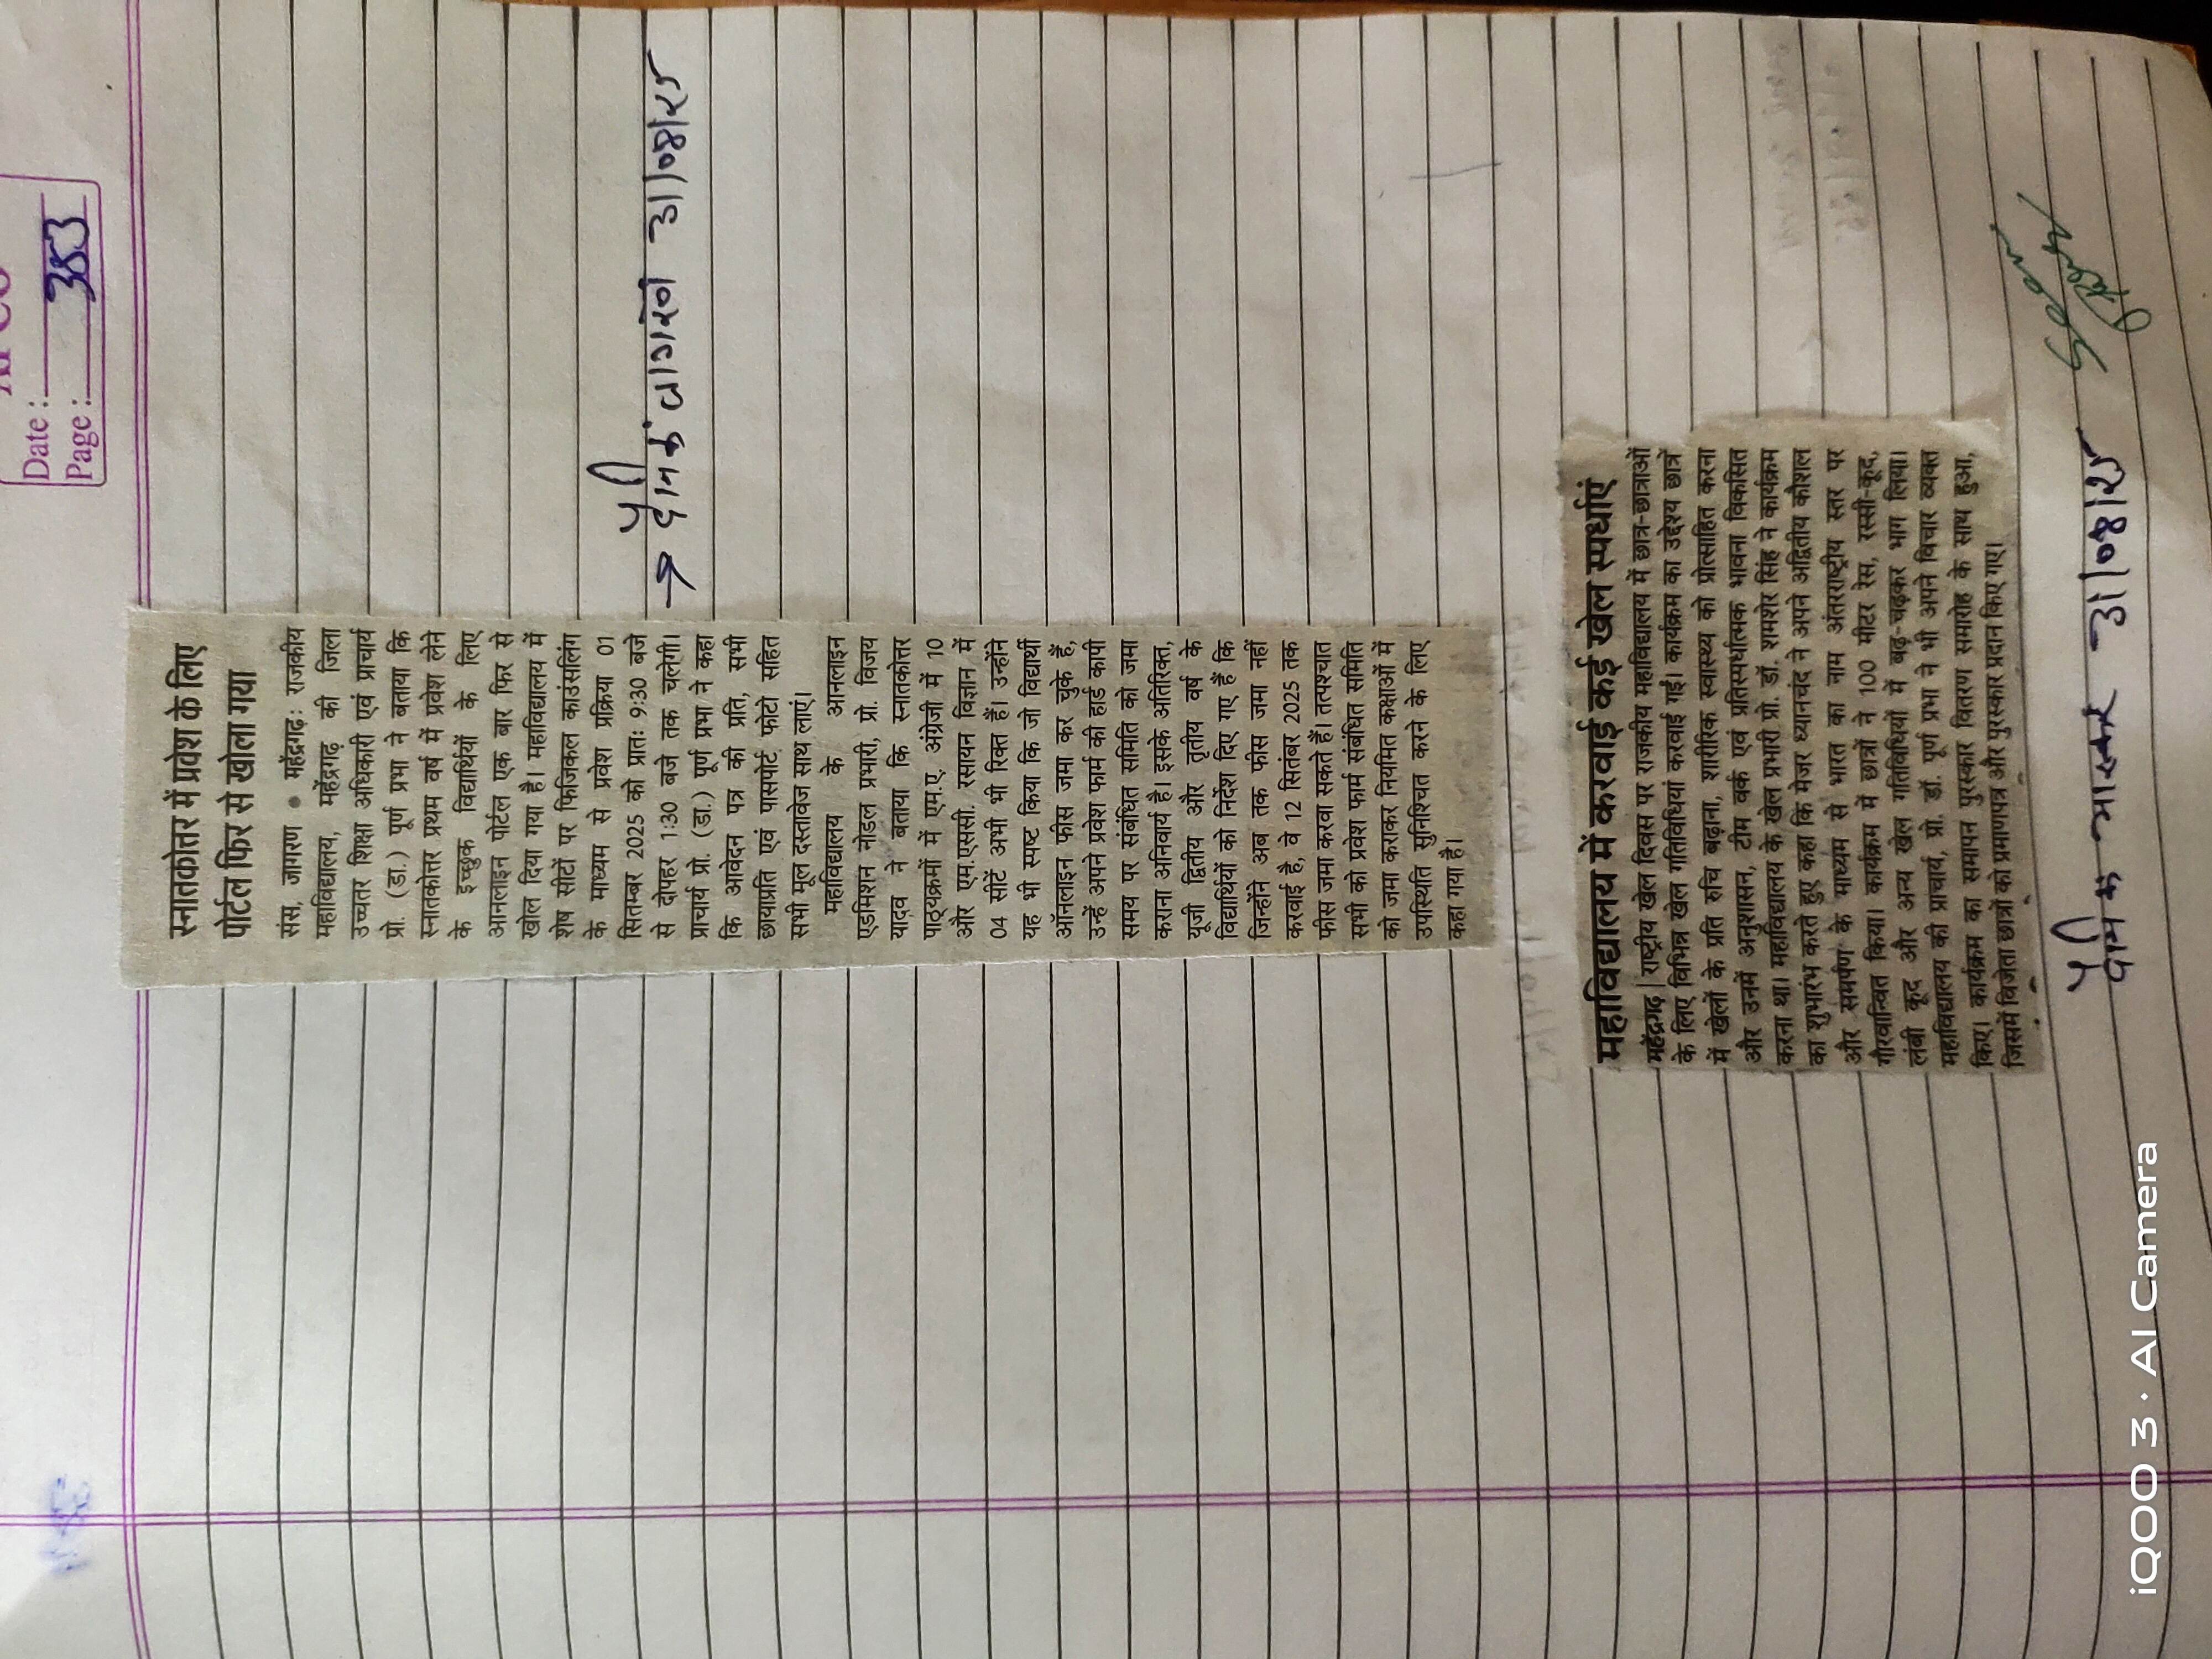 Date :
Page : 353
स्नातकोत्तर में प्रवेश के लिए
पोर्टल फिर से खोला गया
संस, जागरण ● महेंद्रगढ़ः राजकीय
महाविद्यालय, महेंद्रगढ़ की जिला
उच्चतर शिक्षा अधिकारी एवं प्राचार्य
प्रो. (डा.) पूर्ण प्रभा ने बताया कि
स्नातकोत्तर प्रथम वर्ष में प्रवेश लेने
के इच्छुक विद्यार्थियों के लिए
आनलाइन पोर्टल एक बार फिर से
खोल दिया गया है। महाविद्यालय में
शेष सीटों पर फिजिकल काउंसलिंग
के माध्यम से प्रवेश प्रक्रिया 01
सितम्बर 2025 को प्रातः 9:30 बजे
से दोपहर 1:30 बजे तक चलेगी।
प्राचार्य प्रो. (डा.) पूर्ण प्रभा ने कहा
कि आवेदन पत्र की प्रति, सभी
छायाप्रति एवं पासपोर्ट फोटो सहित
सभी मूल दस्तावेज साथ लाएं।
महाविद्यालय के आनलाइन
एडमिशन नोडल प्रभारी, प्रो. विजय
यादव ने बताया कि स्नातकोत्तर
पाठ्यक्रमों में एम.ए. अंग्रेजी में 10
और एम.एससी. रसायन विज्ञान में
04 सीटें अभी भी रिक्त हैं। उन्होंने
यह भी स्पष्ट किया कि जो विद्यार्थी
ऑनलाइन फीस जमा कर चुके हैं,
उन्हें अपने प्रवेश फार्म की हार्ड कापी
समय पर संबंधित समिति को जमा
कराना अनिवार्य है। इसके अतिरिक्त,
यूजी द्वितीय और तृतीय वर्ष के
विद्यार्थियों को निर्देश दिए गए हैं कि
जिन्होंने अब तक फीस जमा नहीं
करवाई है, वे 12 सितंबर 2025 तक
फीस जमा करवा सकते हैं। तत्पश्चात
सभी को प्रवेश फार्म संबंधित समिति
को जमा कराकर नियमित कक्षाओं में
उपस्थिति सुनिश्चित करने के लिए
कहा गया है।
→ दैनिक जागरण 31/08/25
महाविद्यालय में करवाई कई खेल स्पर्धाएं
महेंद्रगढ़ | राष्ट्रीय खेल दिवस पर राजकीय महाविद्यालय में छात्र-छात्राओं
के लिए विभिन्न खेल गतिविधियां करवाई गईं। कार्यक्रम का उद्देश्य छात्रों
में खेलों के प्रति रुचि बढ़ाना, शारीरिक स्वास्थ्य को प्रोत्साहित करना
और उनमें अनुशासन, टीम वर्क एवं प्रतिस्पर्धात्मक भावना विकसित
करना था। महाविद्यालय के खेल प्रभारी प्रो. डॉ. शमशेर सिंह ने कार्यक्रम
का शुभारंभ करते हुए कहा कि मेजर ध्यानचंद ने अपने अद्वितीय कौशल
और समर्पण के माध्यम से भारत का नाम अंतरराष्ट्रीय स्तर पर
गौरवान्वित किया। कार्यक्रम में छात्रों ने 100 मीटर रेस, रस्सी-कूद,
लंबी कूद और अन्य खेल गतिविधियों में बढ़-चढ़कर भाग लिया।
महाविद्यालय की प्राचार्य, प्रो. डॉ. पूर्ण प्रभा ने भी अपने विचार व्यक्त
किए। कार्यक्रम का समापन पुरस्कार वितरण समारोह के साथ हुआ,
जिसमें विजेता छात्रों को प्रमाणपत्र और पुरस्कार प्रदान किए गए।
दैनिक भास्कर 31/08/25
Seen
iQOO 3 · AI Camera